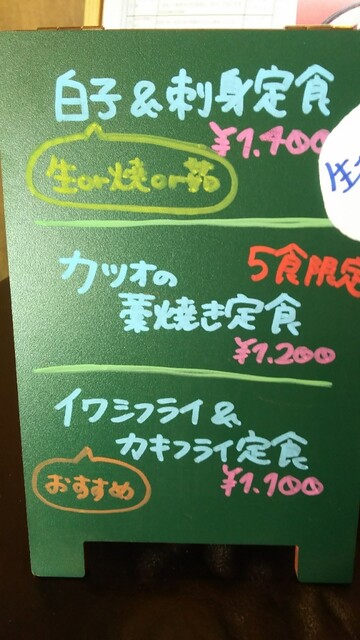 白子&刺身定食
¥1.400
生or焼or茹
カツオの
5食限定
藁焼き定食
¥1.200
イワシフライ&
カキフライ定食
おすすめ
¥1.100